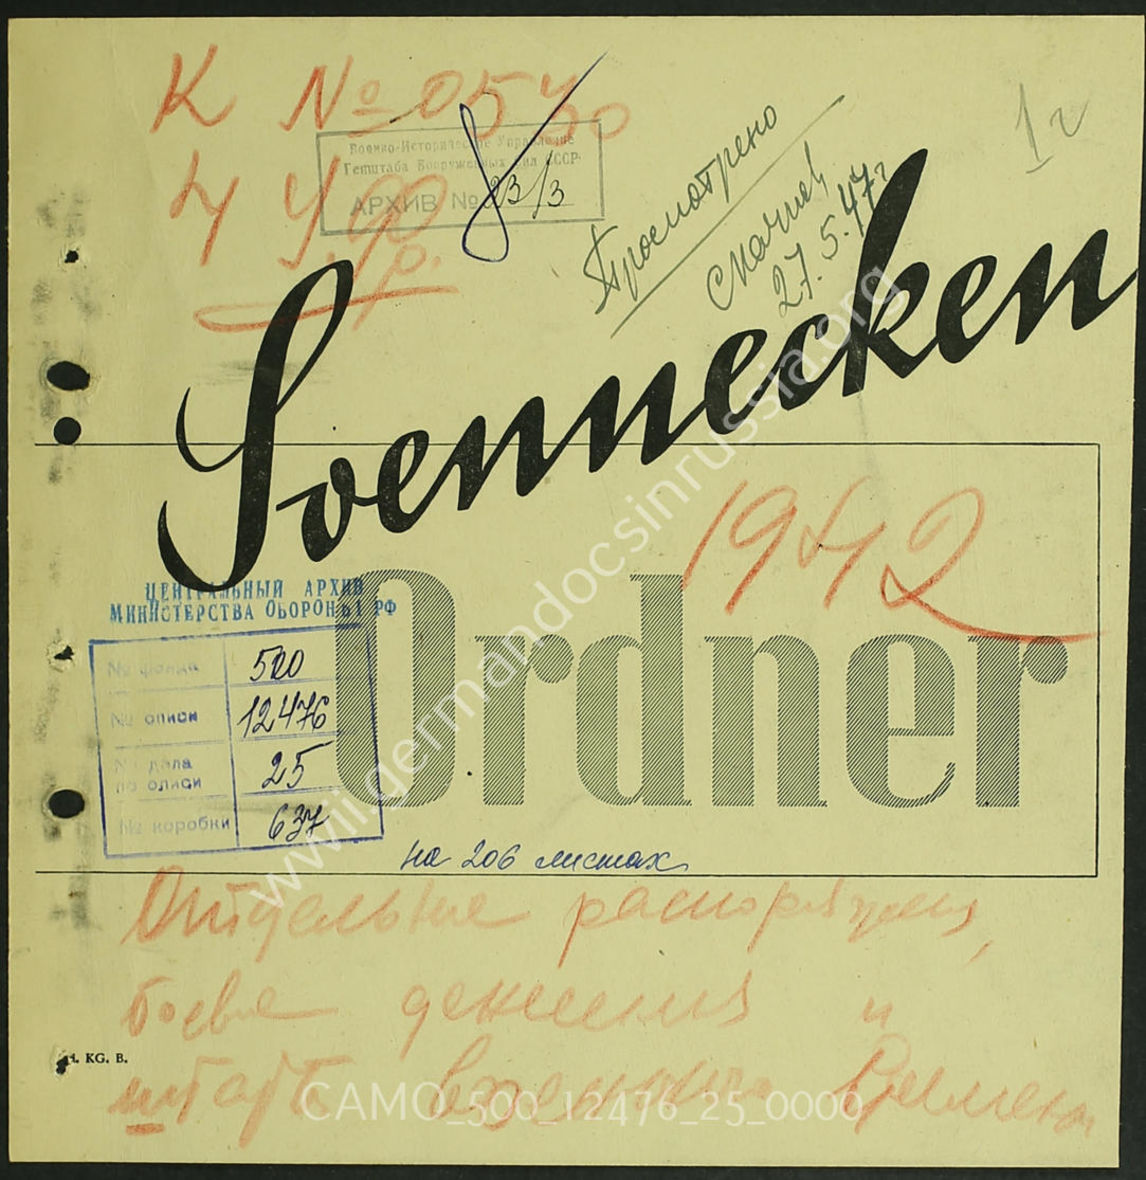 К № 0530
4 Упр
р.
Военно-Историческое Управление
Генштаба Вооруженных Сил СССР
АРХИВ № 23/3
1г
Просмотрено
27.5.47г
Soennecken
1942
Ordner
ЦЕНТРАЛЬНЫЙ АРХИВ
МИНИСТЕРСТВА ОБОРОНЫ РФ
№ фонда 500
№ описи 12476
№ дела
по описи 25
№ коробки 637
на 206 листах
Отдельные распоряжения,
боевые донесения и
штаты военного времени
KG. B.
www.wwii.germandocsinrussia.org
CAMO_500_12476_25_0000